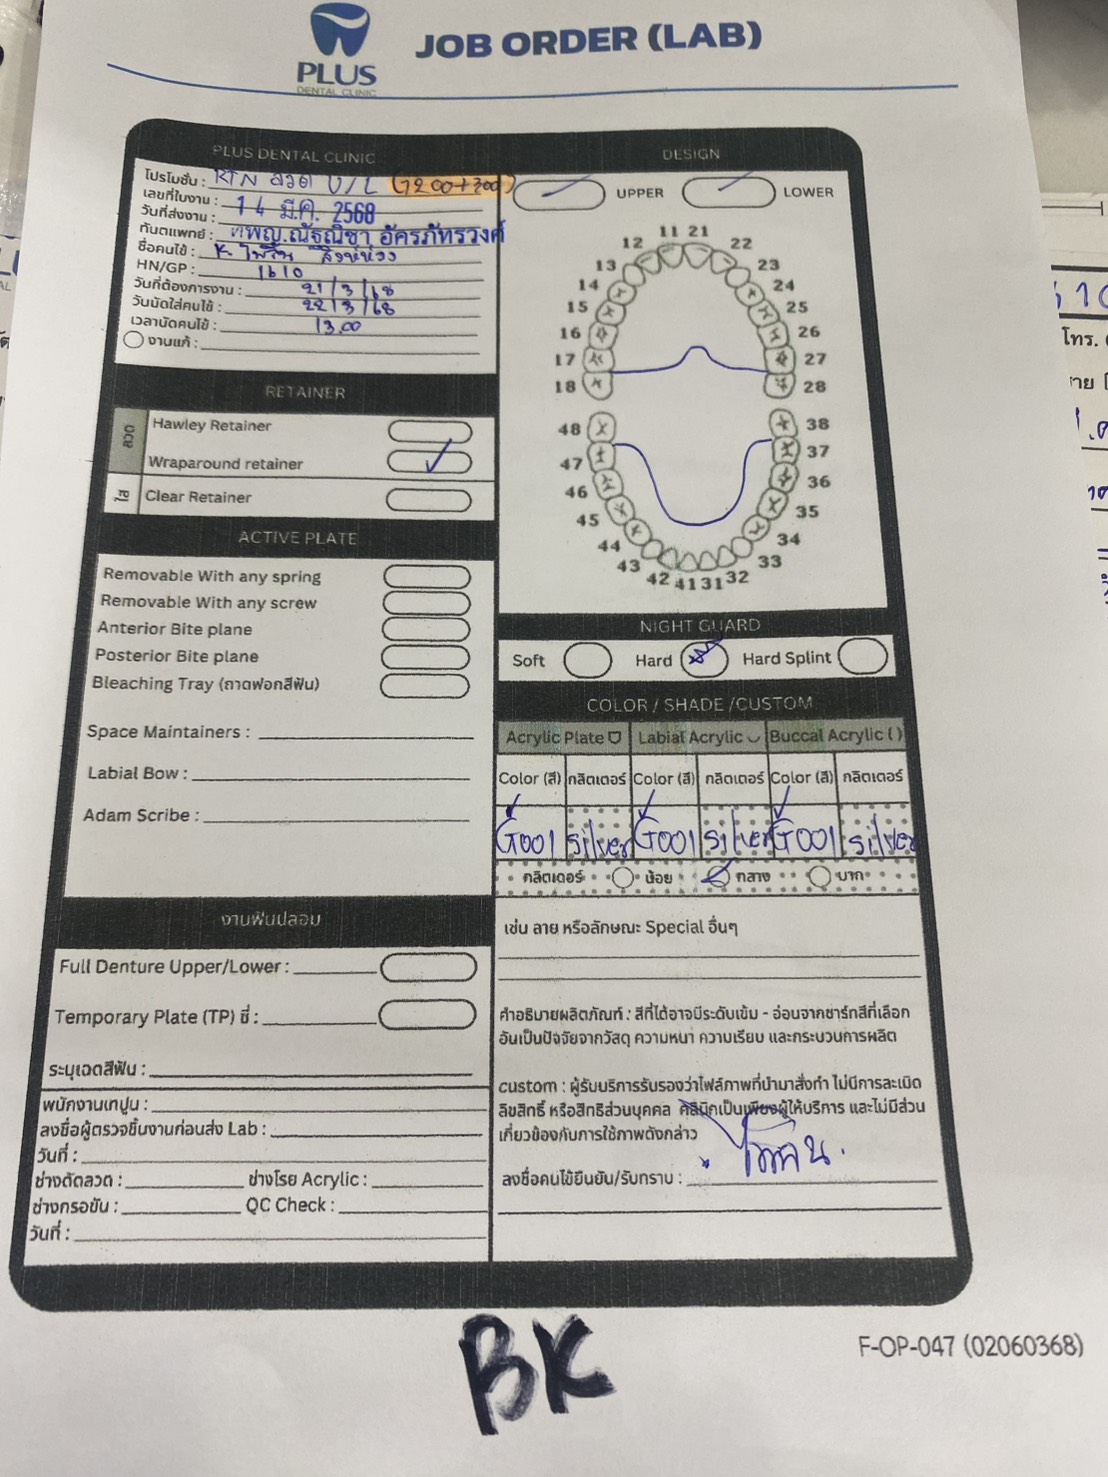 PLUS
DENTAL CLINIC
JOB ORDER (LAB)
PLUS DENTAL CLINIC
โปรโมชั่น : RTN ลวด U/L (7200+300)
เลขที่ใบงาน :
วันที่ส่งงาน : 14 มี.ค. 2568
ทันตแพทย์ : ทพญ.ณัฐณิชา อัครภัทรวงศ์
ชื่อคนไข้ : K.
HN/GP : 1610
วันที่ต้องการงาน : 21/3/68
วันนัดใส่คนไข้ : 22/3/68
เวลานัดคนไข้ : 13.00
งานแก้ :
RETAINER
ลวด
Hawley Retainer
Wraparound retainer
ใส
Clear Retainer
ACTIVE PLATE
Removable With any spring
Removable With any screw
Anterior Bite plane
Posterior Bite plane
Bleaching Tray (ถาดฟอกสีฟัน)
Space Maintainers :
Labial Bow :
Adam Scribe :
งานฟันปลอม
Full Denture Upper/Lower :
Temporary Plate (TP) ซี่ :
ระบุเฉดสีฟัน :
พนักงานเทปูน :
ลงชื่อผู้ตรวจชิ้นงานก่อนส่ง Lab :
วันที่ :
ช่างดัดลวด : ช่างโรย Acrylic :
ช่างกรอขัน : QC Check :
วันที่ :
DESIGN
UPPER LOWER
11 21
12 22
13 23
14 24
15 25
16 26
17 27
18 28
48 38
47 37
46 36
45 35
44 34
43 33
42 41 31 32
NIGHT GUARD
Soft Hard Hard Splint
COLOR / SHADE /CUSTOM
Acrylic Plate Labial Acrylic Buccal Acrylic ( )
Color (สี) กลิตเตอร์ Color (สี) กลิตเตอร์ Color (สี) กลิตเตอร์
G001 silver G001 silver G001 silver
กลิตเตอร์ น้อย กลาง มาก
เช่น ลาย หรือลักษณะ Special อื่นๆ
คำอธิบายผลิตภัณฑ์ : สีที่ได้อาจมีระดับเข้ม - อ่อนจากชาร์ทสีที่เลือก
อันเป็นปัจจัยจากวัสดุ ความหนา ความเรียบ และกระบวนการผลิต
custom : ผู้รับบริการรับรองว่าไฟล์ภาพที่นำมาสั่งทำ ไม่มีการละเมิด
ลิขสิทธิ์ หรือสิทธิส่วนบุคคล คลินิกเป็นเพียงผู้ให้บริการ และไม่มีส่วน
เกี่ยวข้องกับการใช้ภาพดังกล่าว
ลงชื่อคนไข้ยืนยัน/รับทราบ :
BK
F-OP-047 (02060368)
โทร.